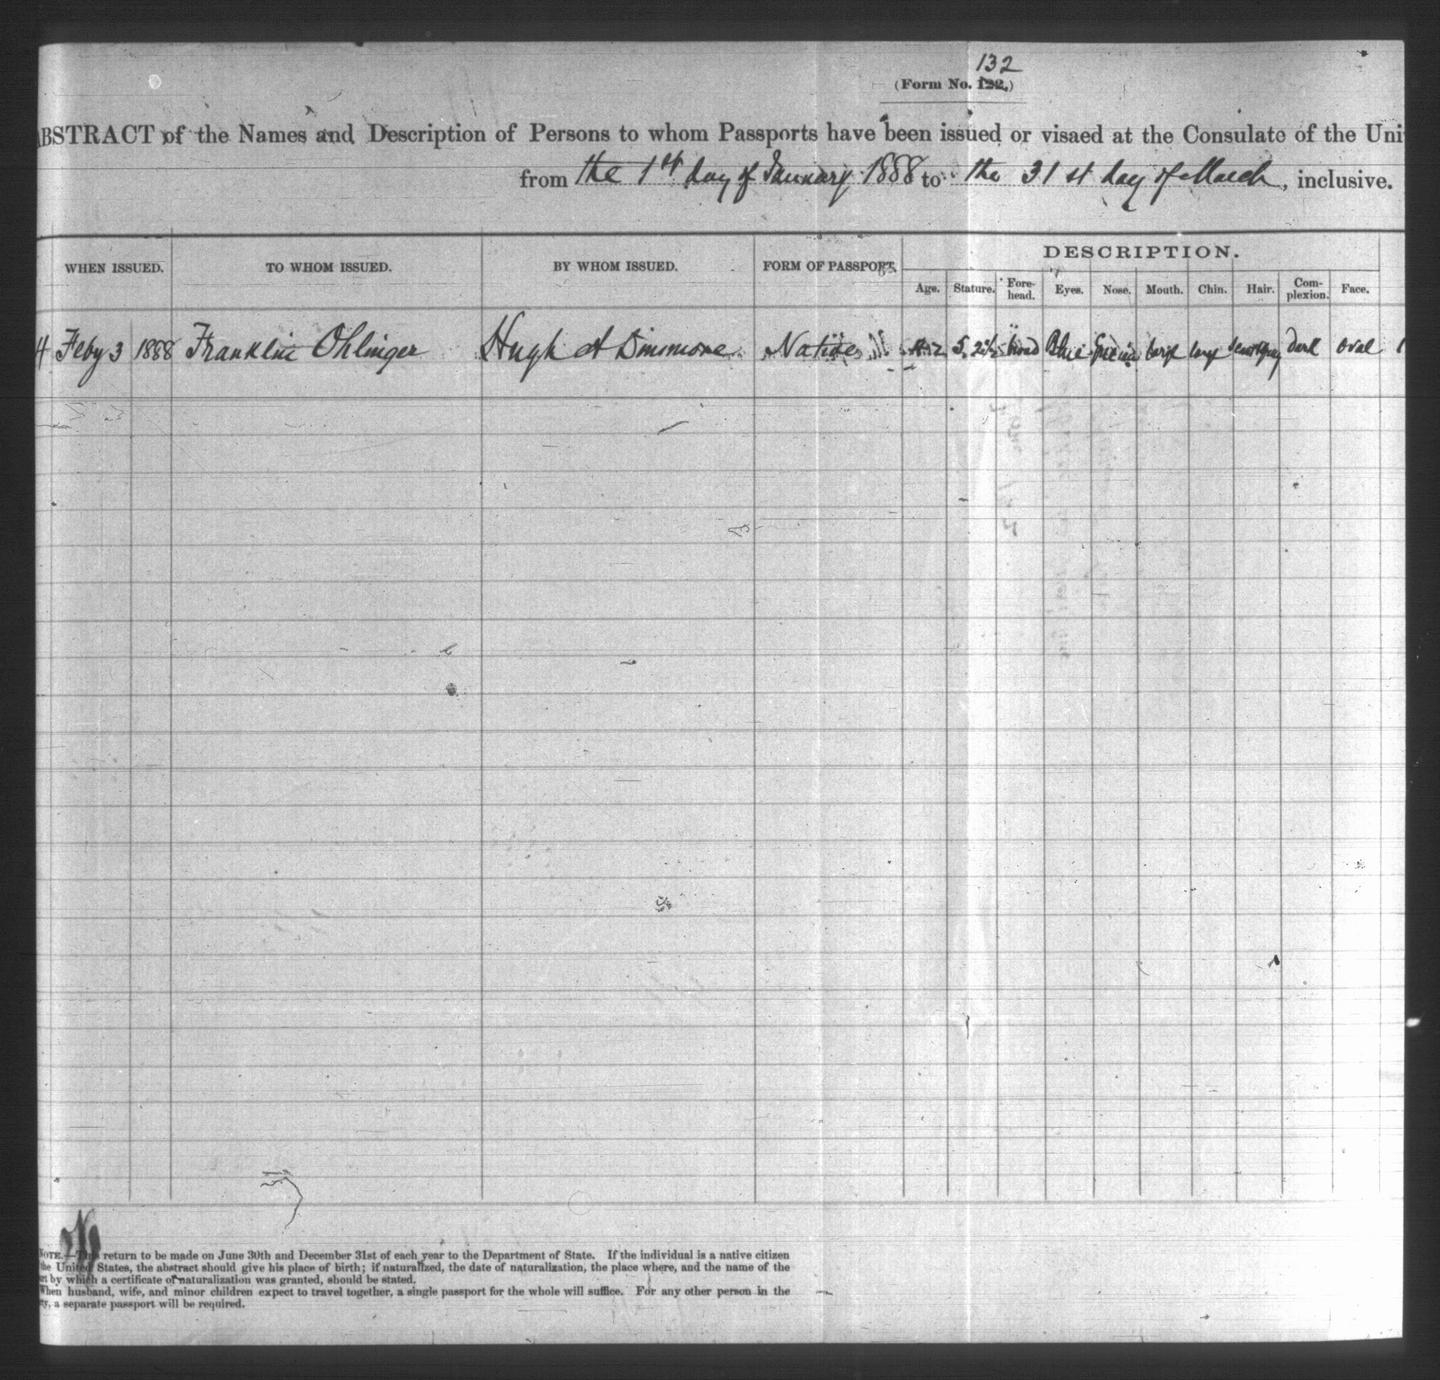 132
(Form No. 122.)
ABSTRACT of the Names and Description of Persons to whom Passports have been issued or visaed at the Consulate of the Uni
from the 1st day of January 1888 to the 31st day of March, inclusive.
WHEN ISSUED. TO WHOM ISSUED. BY WHOM ISSUED. FORM OF PASSPORT. DESCRIPTION.
Age. Stature. Fore-head. Eyes. Nose. Mouth. Chin. Hair. Com-plexion. Face.
4 Feby 3 1888 Franklin Ohlinger Hugh A Dinsmore Native 42 5, 2½ broad Blue large large dark oval
NOTE.—This return to be made on June 30th and December 31st of each year to the Department of State. If the individual is a native citizen
the United States, the abstract should give his place of birth; if naturalized, the date of naturalization, the place where, and the name of the
by which a certificate of naturalization was granted, should be stated.
When husband, wife, and minor children expect to travel together, a single passport for the whole will suffice. For any other person in the
a separate passport will be required.